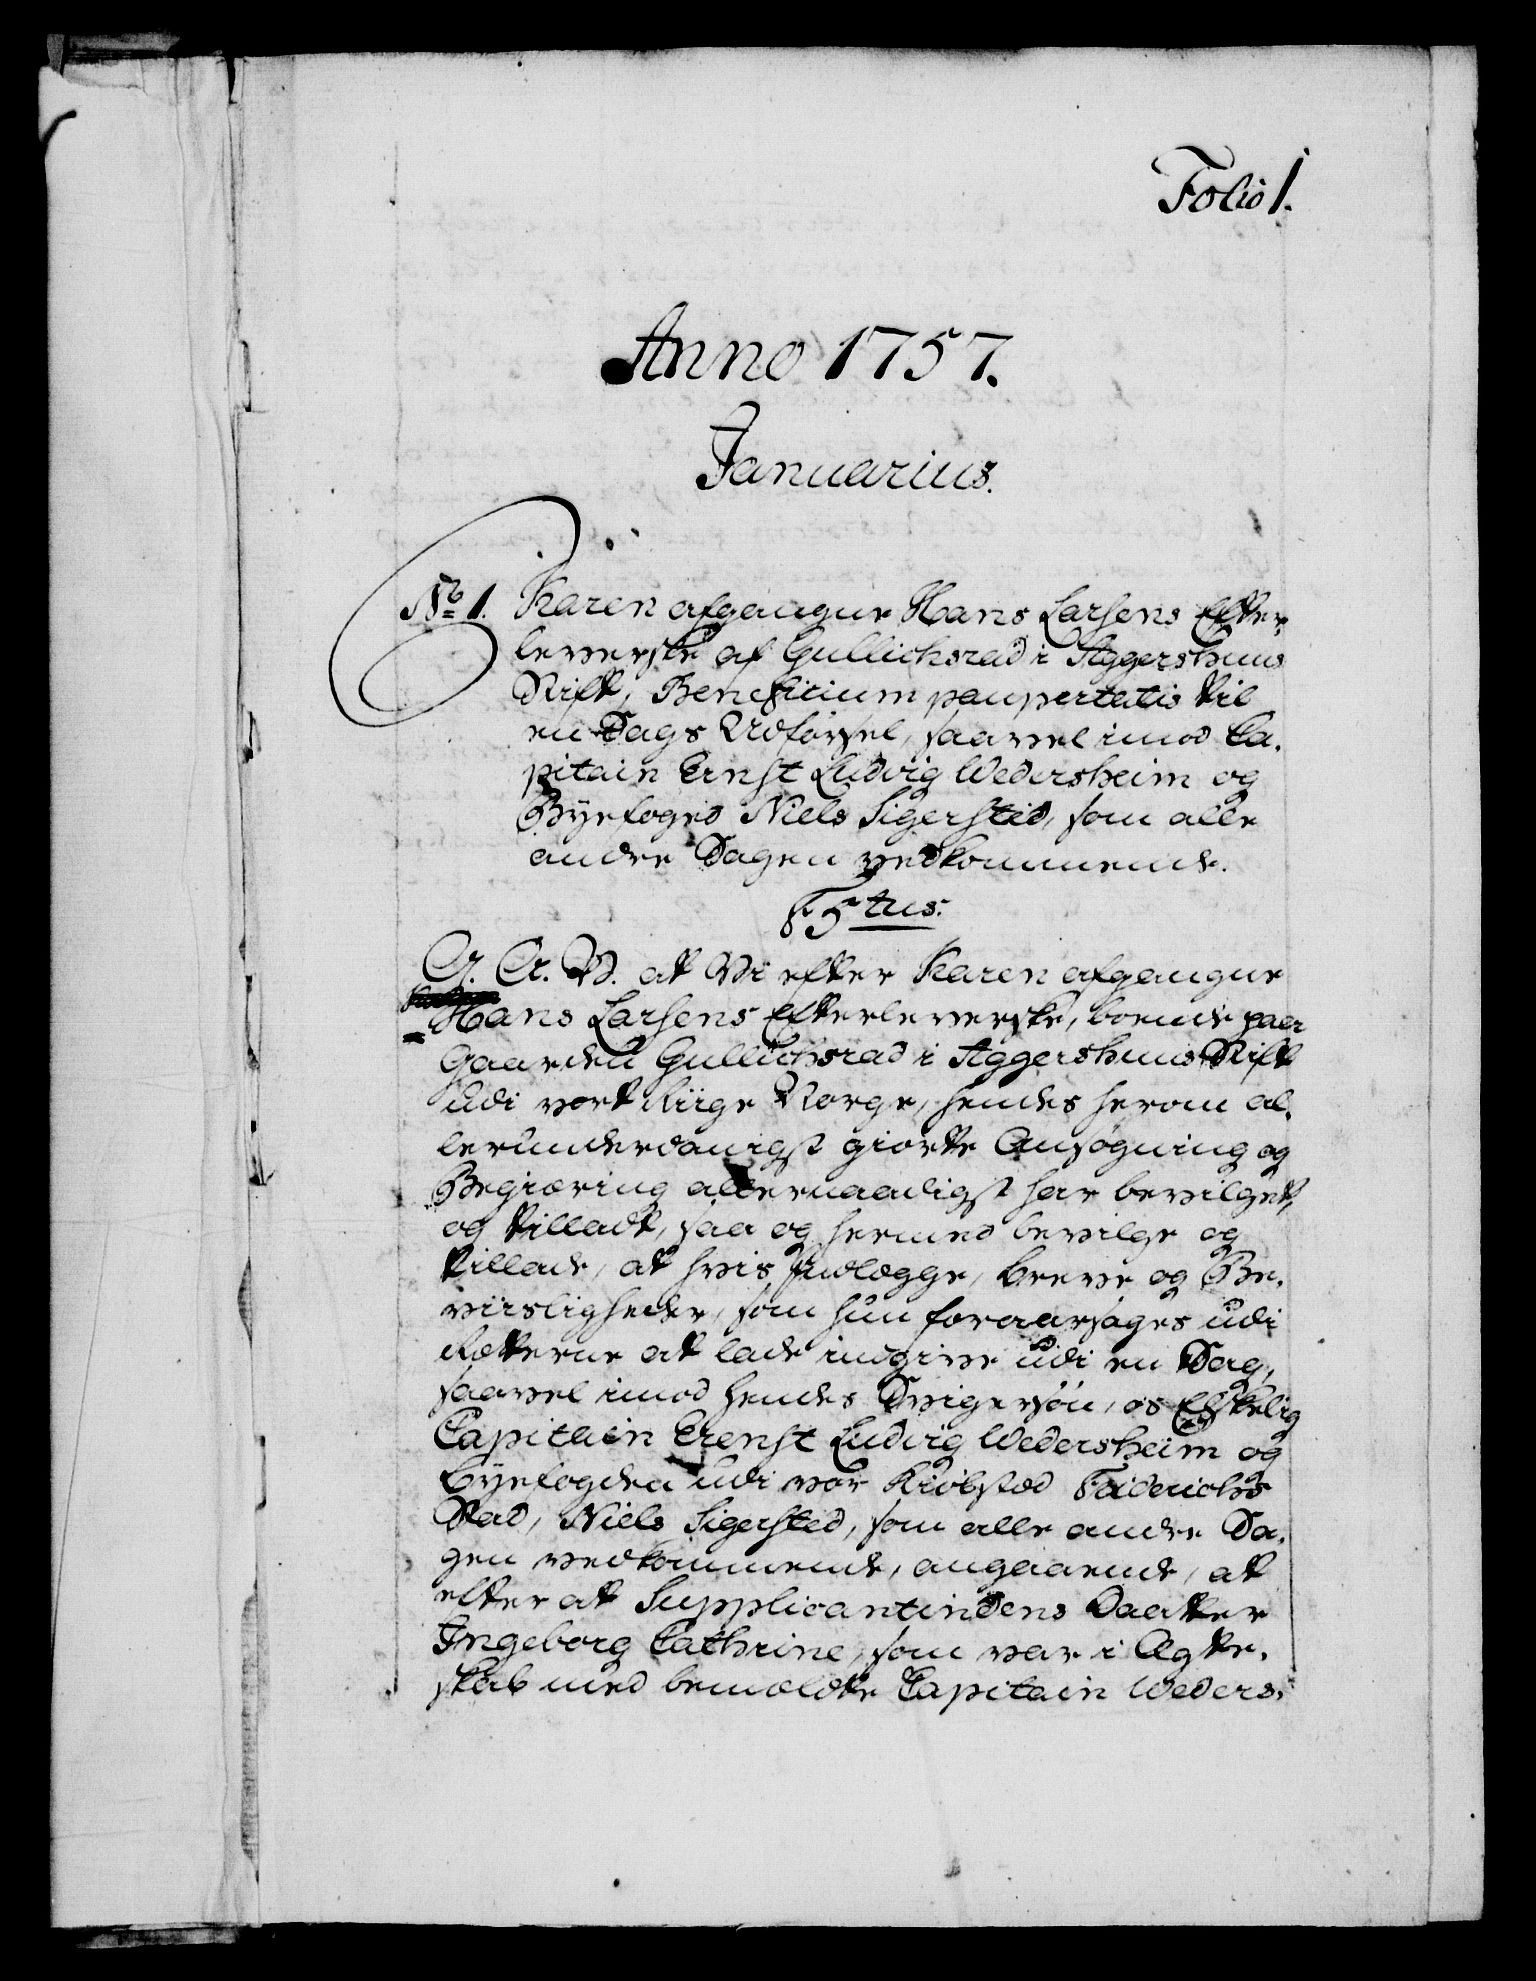 Folio 1.
Anno 1757.
Januarius.
No 1. Karen afgangne Hans Larsens Efter¬
leverske af Gullichsrad i Aggershuus
Stift, Beneficium paupertatis til
en Sags Udførsel, saavel imod Ca¬
pitain Ernst Ludvig Wedersheim og
Byefoged Niels Sigersted, som alle
andre Sagen vedkommende.
F 5tus.
G. A. V. at Vi efter Karen afgangne
Hans Larsens Efterleverske, boende paa
Gaarden Gullichsrad i Aggershuus Stift
udi vort Riige Norge, hendes herom al¬
lerunderdanigst giorte Ansøgning og
Begiæring allernaadigst har bevilget,
og tilladt, saa og hermed bevilge og
tillade, at hvis Indlægge, breve og Be¬
viisligheder, som hun foraarsages udi
Retterne at lade indgive udi en Sag,
saavel imod hendes Svigersøn, os Elskelig
Capitain Erenst Ludvig Wedersheim og
byefogden udi vor Kiøbstæd Friderichs
Stad, Niels Sigersted, som alle andre Sa¬
gen vedkommende, angaaende, at
efter at Supplicantindens Daatter
Ingeborg Cathrine, som var i Ægte¬
skab med bemældte Capitain Weders¬